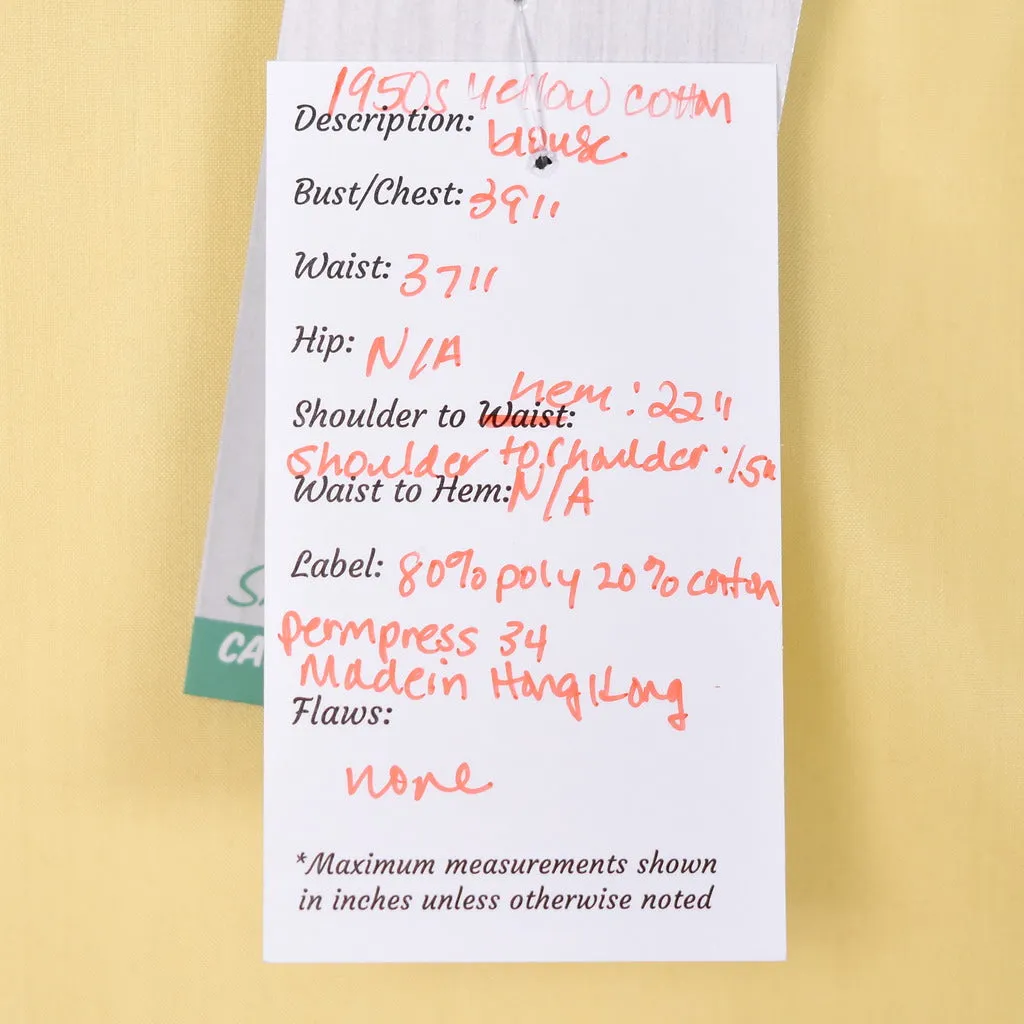 1950s Yellow cotton
Description: blouse
Bust/Chest: 39"
Waist: 37"
Hip: N/A
hem: 22"
Shoulder to Waist:
Shoulder to shoulder: 15"
Waist to Hem: N/A
Label: 80% poly 20% cotton
permpress 34
Made in Hong Kong
Flaws:
none
*Maximum measurements shown
in inches unless otherwise noted
CA